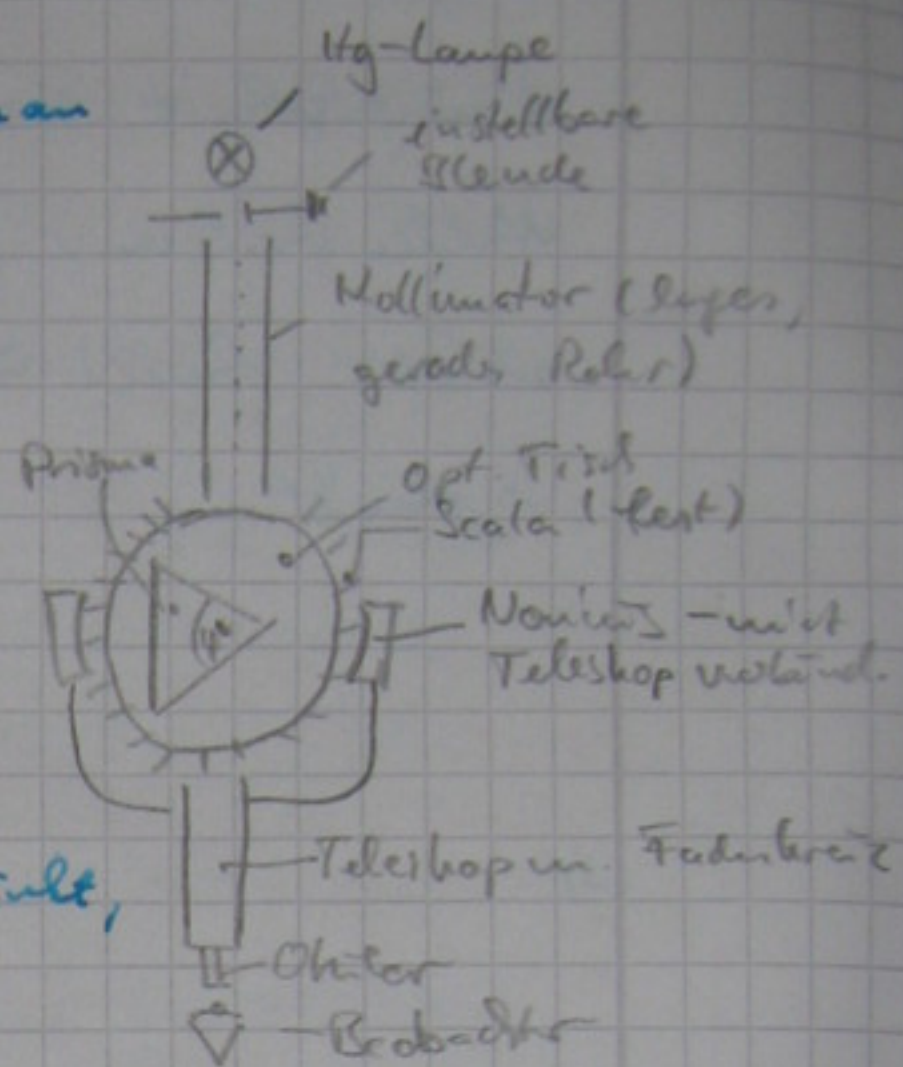 Hg-Lampe
an
einstellbare
Blende
Kollimator (langes,
gerades Rohr)
Prisma
Opt. Tisch
Scala (fest)
Nonius - mit
Teleskop verbund.
Teleskop m. Fadenkreuz
Okular
Beobachter